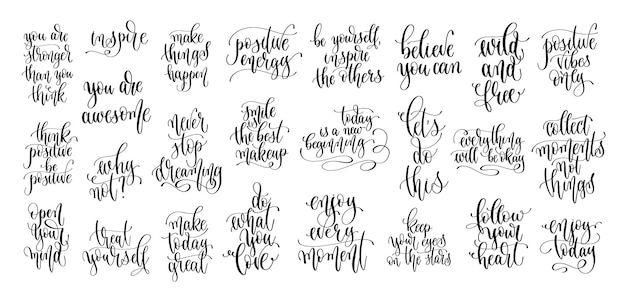 you are
stronger
than you
think
inspire
make
things
happen
positive
energy
be yourself,
inspire
the others
believe
you can
wild
and
free
positive
vibes
only
you are
awesome
think
positive
be
positive
why
not?
never
stop
dreaming
smile
is the best
makeup
today
is a new
beginning
let's
do
this
everything
will be okay
collect
moments
not
things
open
your
mind
treat
yourself
make
today
great
do
what
you
love
enjoy
every
moment
keep
your eyes
on the stars
follow
your
heart
enjoy
today